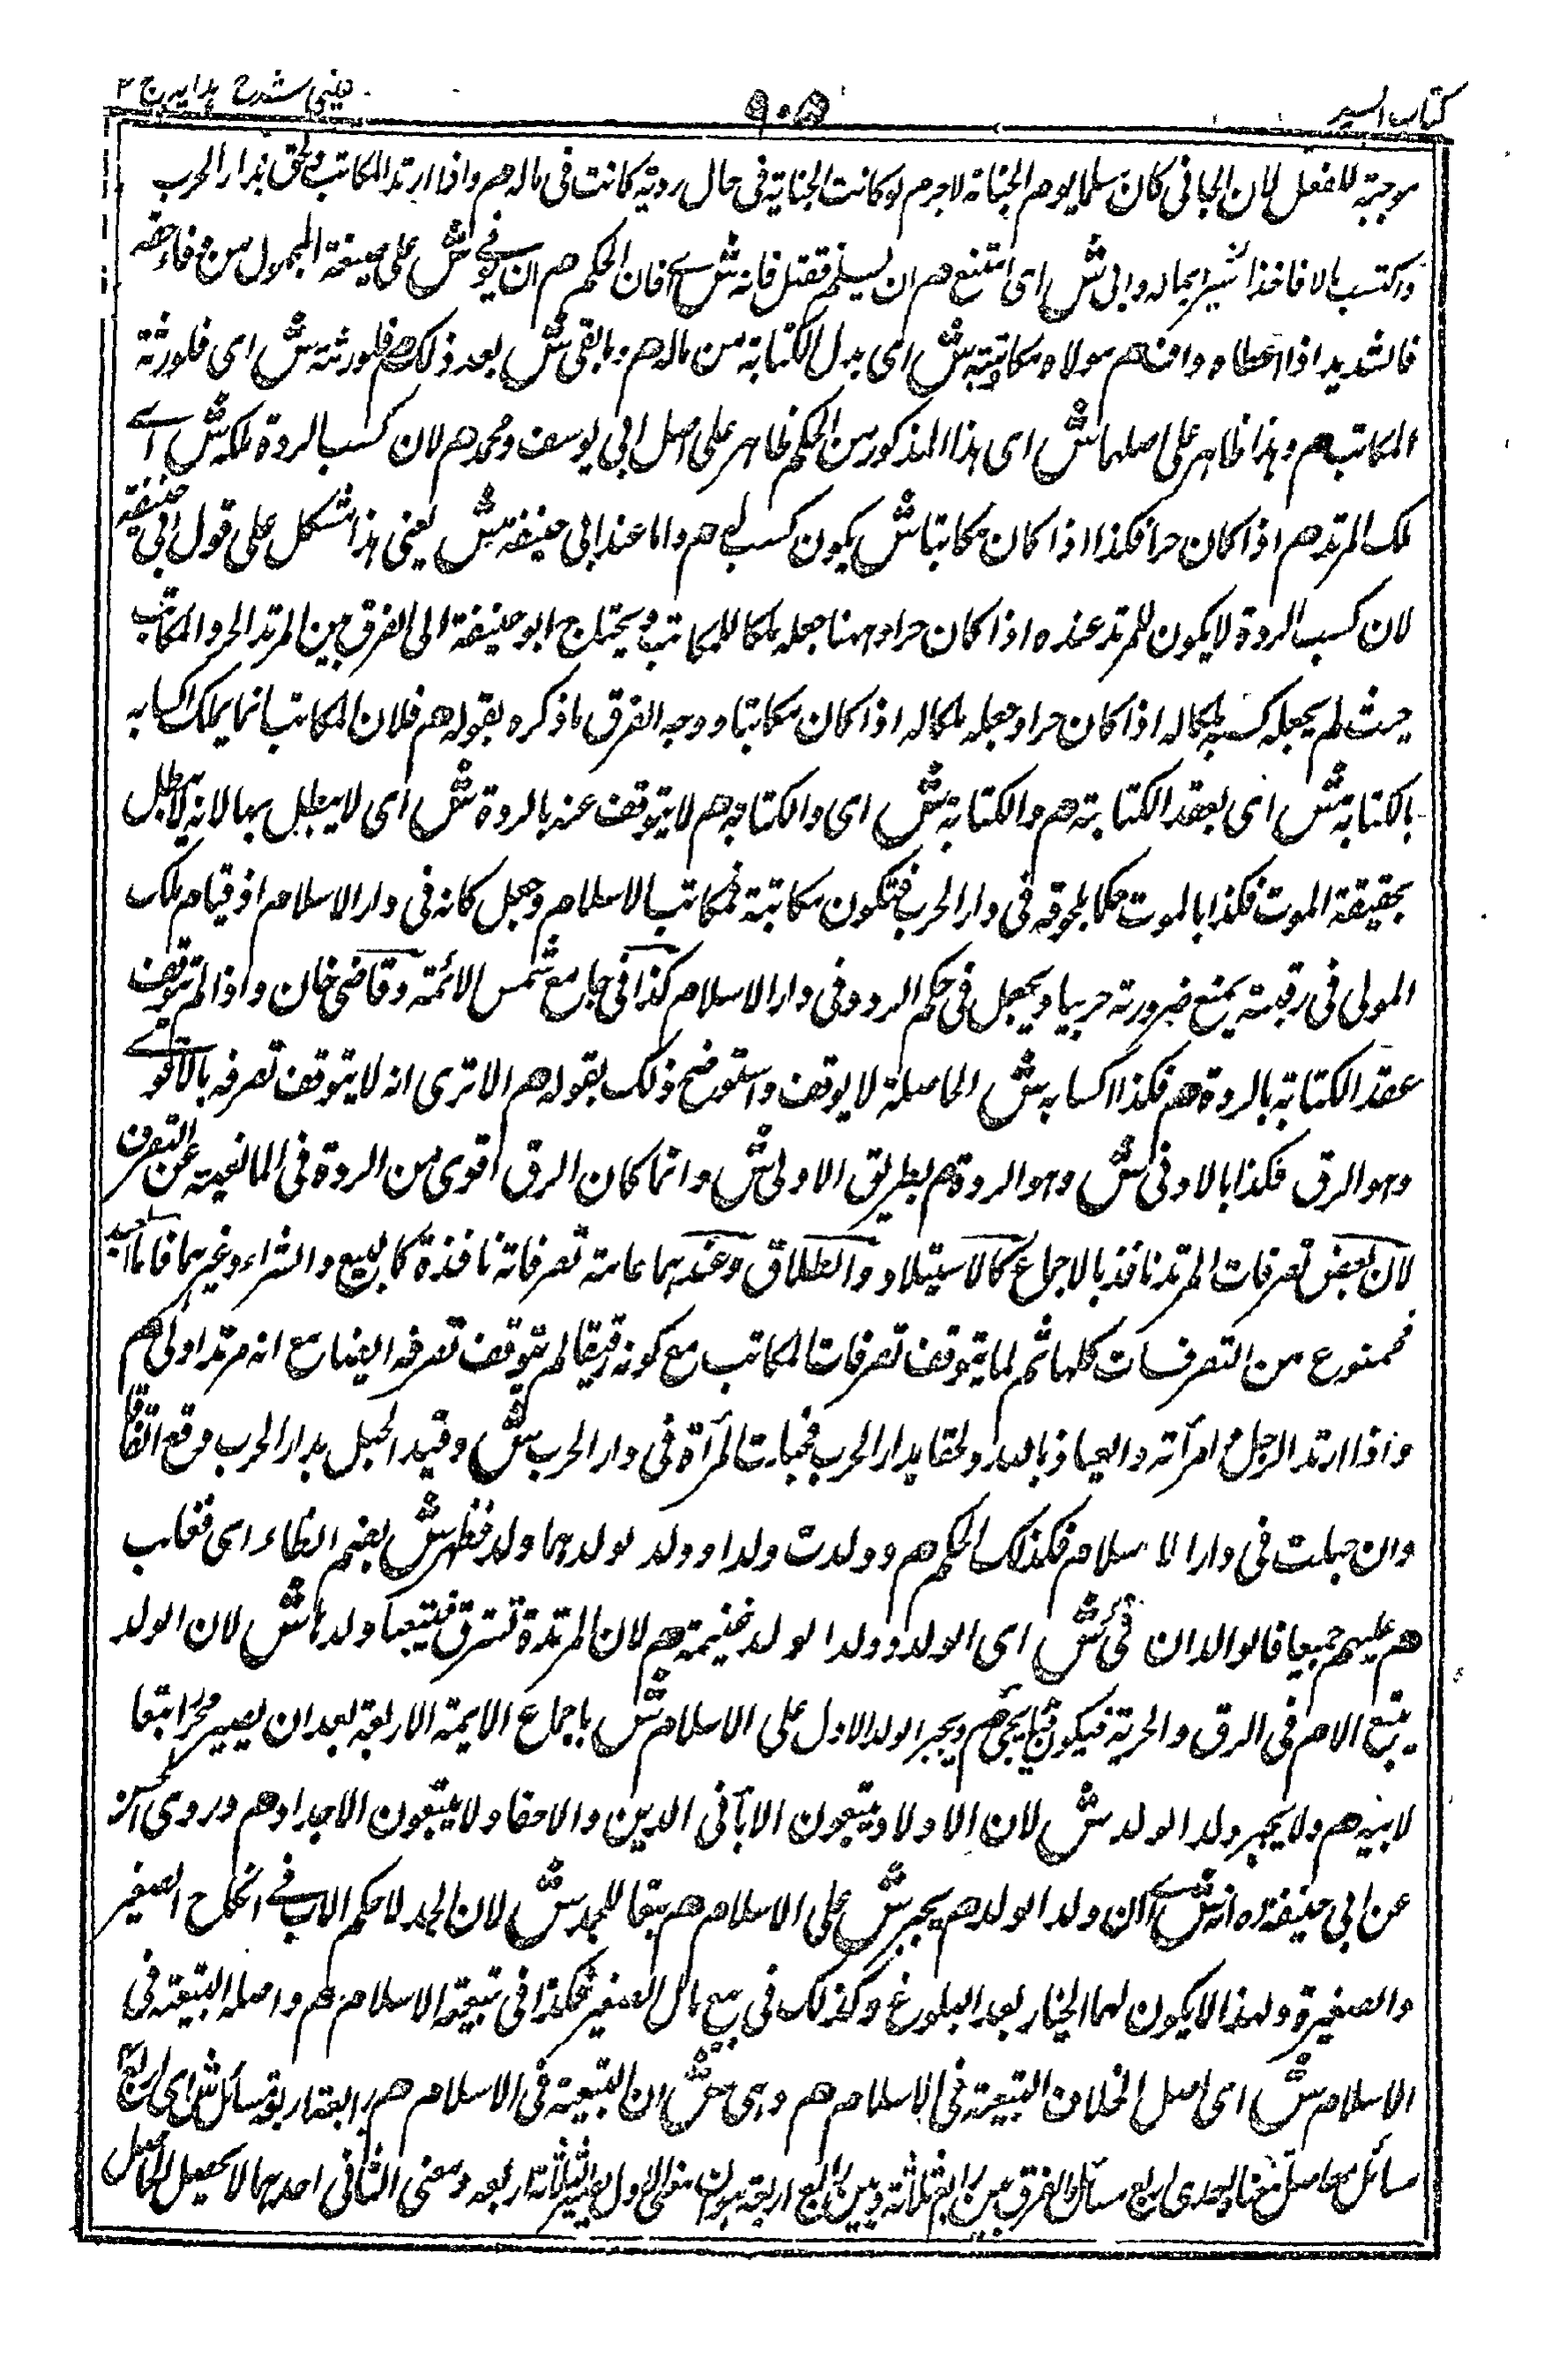 كتاب السير
٩٠٥
عينى شرح هدايه ج ٢
موجبة للفعل لان الجانى كان مسلما يوم الجناية لاجرم لو كانت الجناية فى حال ردته كانت فى ماله هم واذا ارتد المكاتب ولحق بدار الحرب
واكتسب مالا فاخذ اسيرا بماله وابى ش اى امتنع هم ان يسلم فقتل فانه ش اى فان الحكم هم ان يوفى ش على صيغة المجهول من وفاء حقه
فالتشديد اذا اعطاه وافيا هم مولاه مكاتبته ش اى بدل الكتابة من ماله هم وما بقى ش بعد ذلك هم فلورثته ش اى فلورثة
المكاتب هم وهذا ظاهر على اصلهما ش اى هذا المذكور من الحكم ظاهر على اصل ابى يوسف ومحمد هم لان كسب الردة ملكه ش اے
ملك المرتد هم اذا كان حرا فكذا اذا كان مكاتبا ش يكون كسب له هم واما عند ابى حنيفة ش يعنى هذا مشكل على قول ابى حنيفة
لان كسب الردة لا يكون للمرتد عنده اذا كان حرا وههنا جعله ملكا للمكاتب ويحتاج ابو حنيفة الى الفرق بين المرتد الحر والمكاتب
حيث لم يجعله كسبه ملكا له اذا كان حرا وجعله ملكا له اذا كان مكاتبا ووجه الفرق ما ذكره بقوله هم فلان المكاتب انما يملك اكسابه
بالكتابة ش اى بعقد الكتابة هم والكتابة ش اى والكتابة هم لا يتوقف عنه بالردة ش اى لا يبطل بها لانه لا يبطل
بحقيقة الموت فكذا بالموت حكما بلحوقه فى دار الحرب فتكون مكاتبة فمكاتب الاسلام وجعل كانه فى دار الاسلام اذ قيام ملك
المولى فى رقبته يمنع ضرورته حربيا ويجعل فى حكم الردو فى دار الاسلام كذا فى جامع شمس الائمة وقاضى خان واذا لم يتوقف
عقد الكتابة بالردة هم فكذا اكسابه ش الحاصلة لا يوقف واستوضح ذلك بقوله هم الا ترى انه لا يتوقف تصرفه بالاقوى
وهو الرق فكذا بالادنى ش وهو الردة هم بطريق الاولى ش وانما كان الرق اقوى من الردة فى المانعية عن التصرف
لان بعض تصرفات المرتد نافذ بالاجماع كالاستيلاد والطلاق وعندهما عامة تصرفاته نافذة كالبيع والشراء وغيرهما فاما العبد
فممنوع من التصرفات كلها ثم لما يتوقف تصرفات المكاتب مع كونه رقيقا لم يتوقف تصرفه ايضا مع انه مرتد اولى هم
واذا ارتد الرجل وامرأته والعياذ بالله ولحقا بدار الحرب فحبلت المرأة فى دار الحرب ش وقيد الحبل بدار الحرب وقع اتفاقا
وان حبلت فى دار الاسلام فكذلك الحكم هم وولدت ولدا وولد لولدهما ولد فظهر ش بضم الظاء اى فغلب
هم عليهم جميعا فالوالدان فئ ش اى الولد وولد الولد غنيمة هم لان المرتدة تسترق فيتبعها ولدها ش لان الولد
يتبع الام فى الرق والحرية فيكون هم ويجبر الولد الاول على الاسلام ش باجماع الائمة الاربعة بعد ان يصير تبعا
لابيه هم ولا يجبر ولد الولد ش لان الاولاد يتبعون الآبا فى الدين والاحفاد لا يتبعون الاجداد هم وروى الحسن
عن ابى حنيفة ره انه ش اى ان ولد الولد هم يجبر ش على الاسلام هم تبعا للجد ش لان الجد لاحكم الاب فى انكاح الصغير
والصغيرة ولهذا لا يكون لهما الخيار بعد البلوغ وكذلك فى بيع مال الصغير فكذا فى تبعية الاسلام هم واصله التبعية فى
الاسلام ش اى اصل الخلاف التبعية فى الاسلام هم وهى ش ان التبعية فى الاسلام هم رابعة اربعة مسائل ش اى اربع
مسائل حاصل معناه احدى اربع مسائل والفرق بين رابع ثلاثة وبين رابع اربعة ان معنى الاول الثلاثة اربعة ومعنى الثانى احدهما لا تحصيل الحاصل